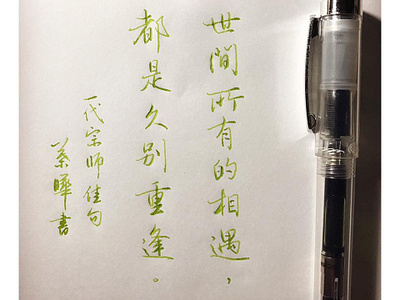 世間所有的相遇，
都是久別重逢。
一代宗師佳句
蔡曄書